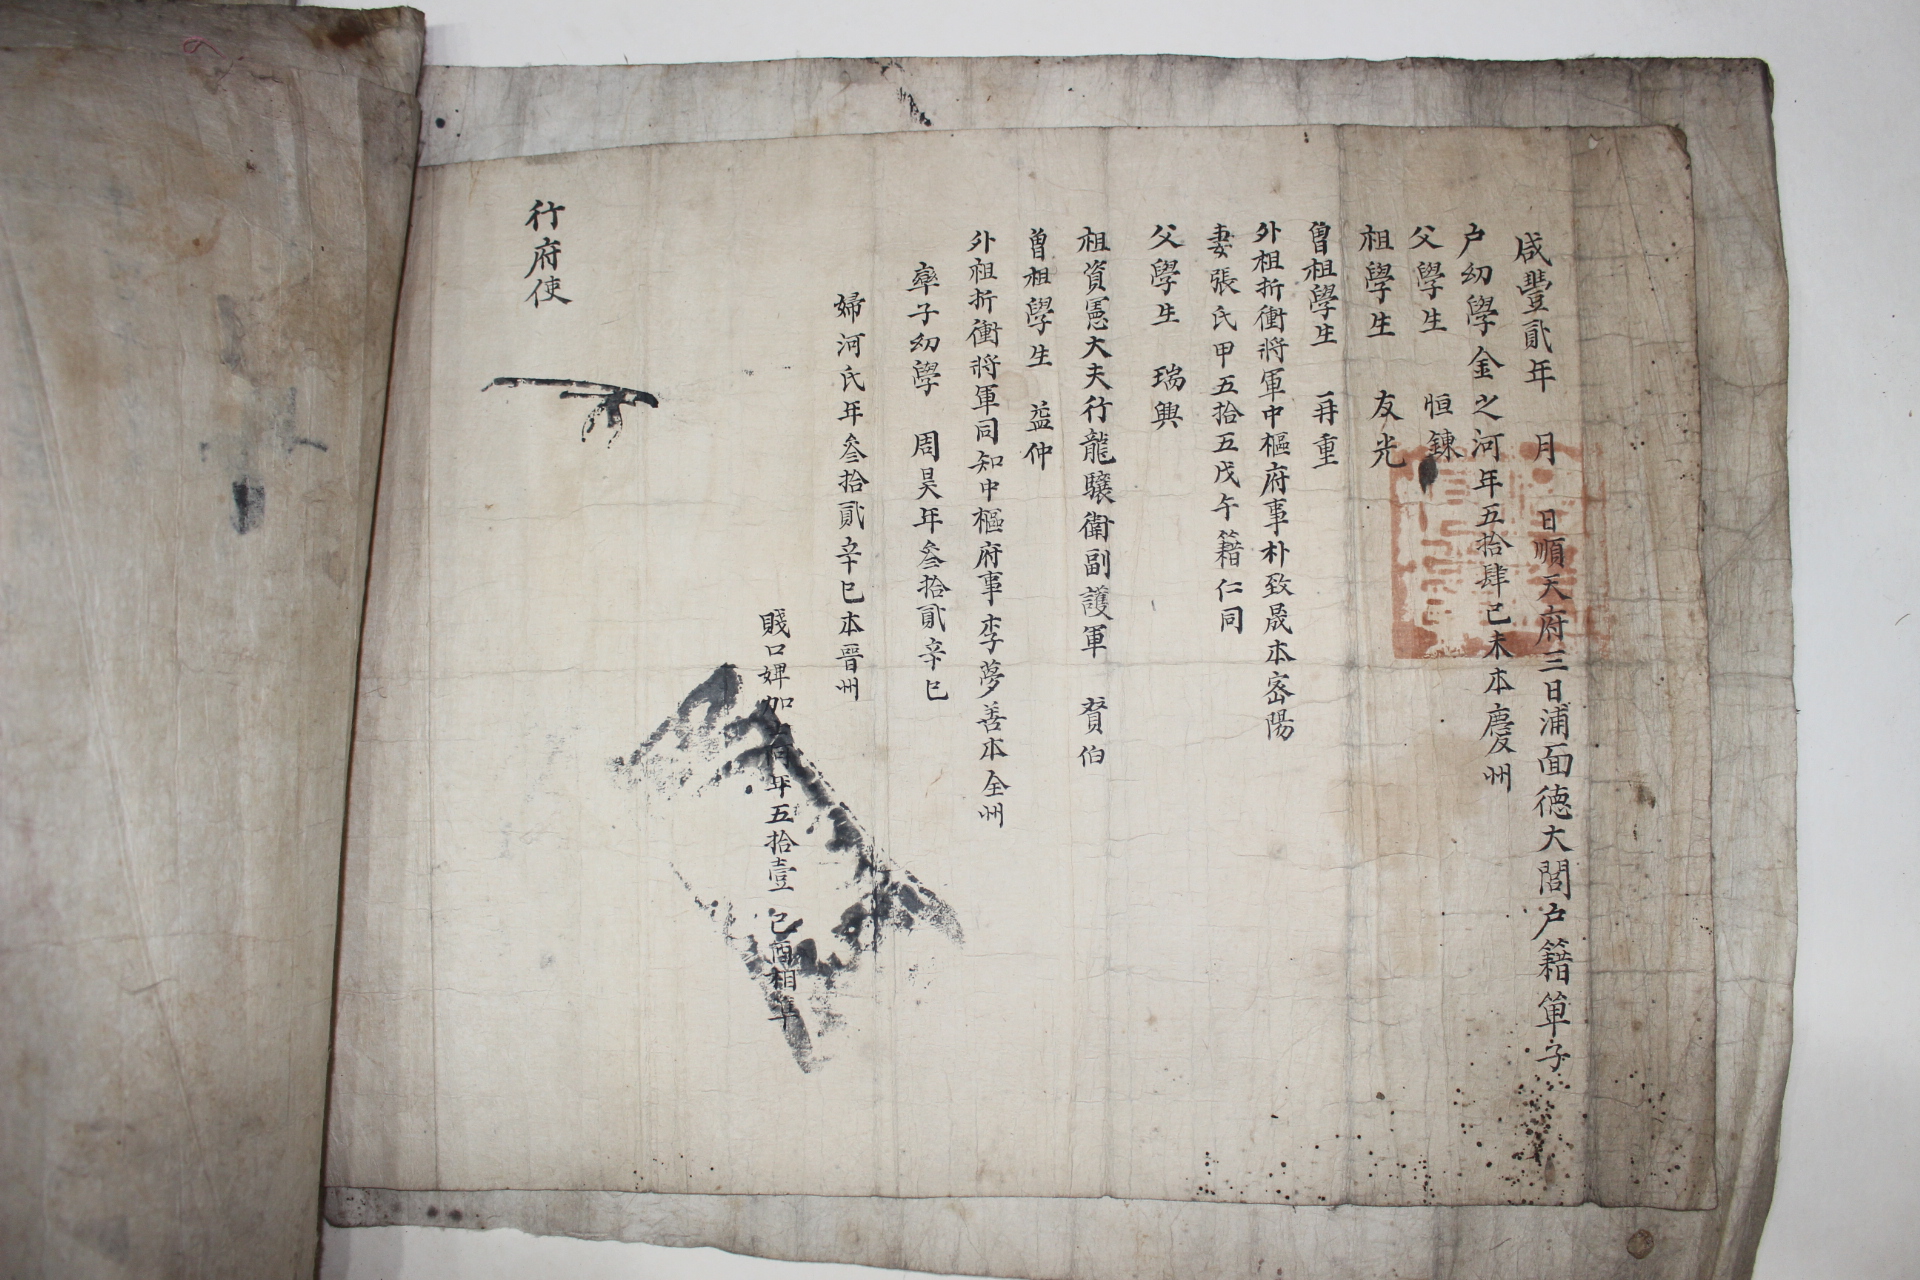 咸豐貳年 月 日順天府三日浦面德大閭戶籍單子
戶幼學金之河年五拾肆己未本慶州
父學生 恒鍊
祖學生 友光
曾祖學生 再重
外祖折衝將軍中樞府事朴致晟本密陽
妻張氏甲五拾五戊午籍仁同
父學生 瑞興
祖資憲大夫行龍驤衛副護軍 賚伯
曾祖學生 益仲
外祖折衝將軍同知中樞府事李夢善本全州
率子幼學 周昊年叁拾貳辛巳
婦河氏年叁拾貳辛巳本晋州
賤口婢加 年五拾壹 己酉相準
行府使